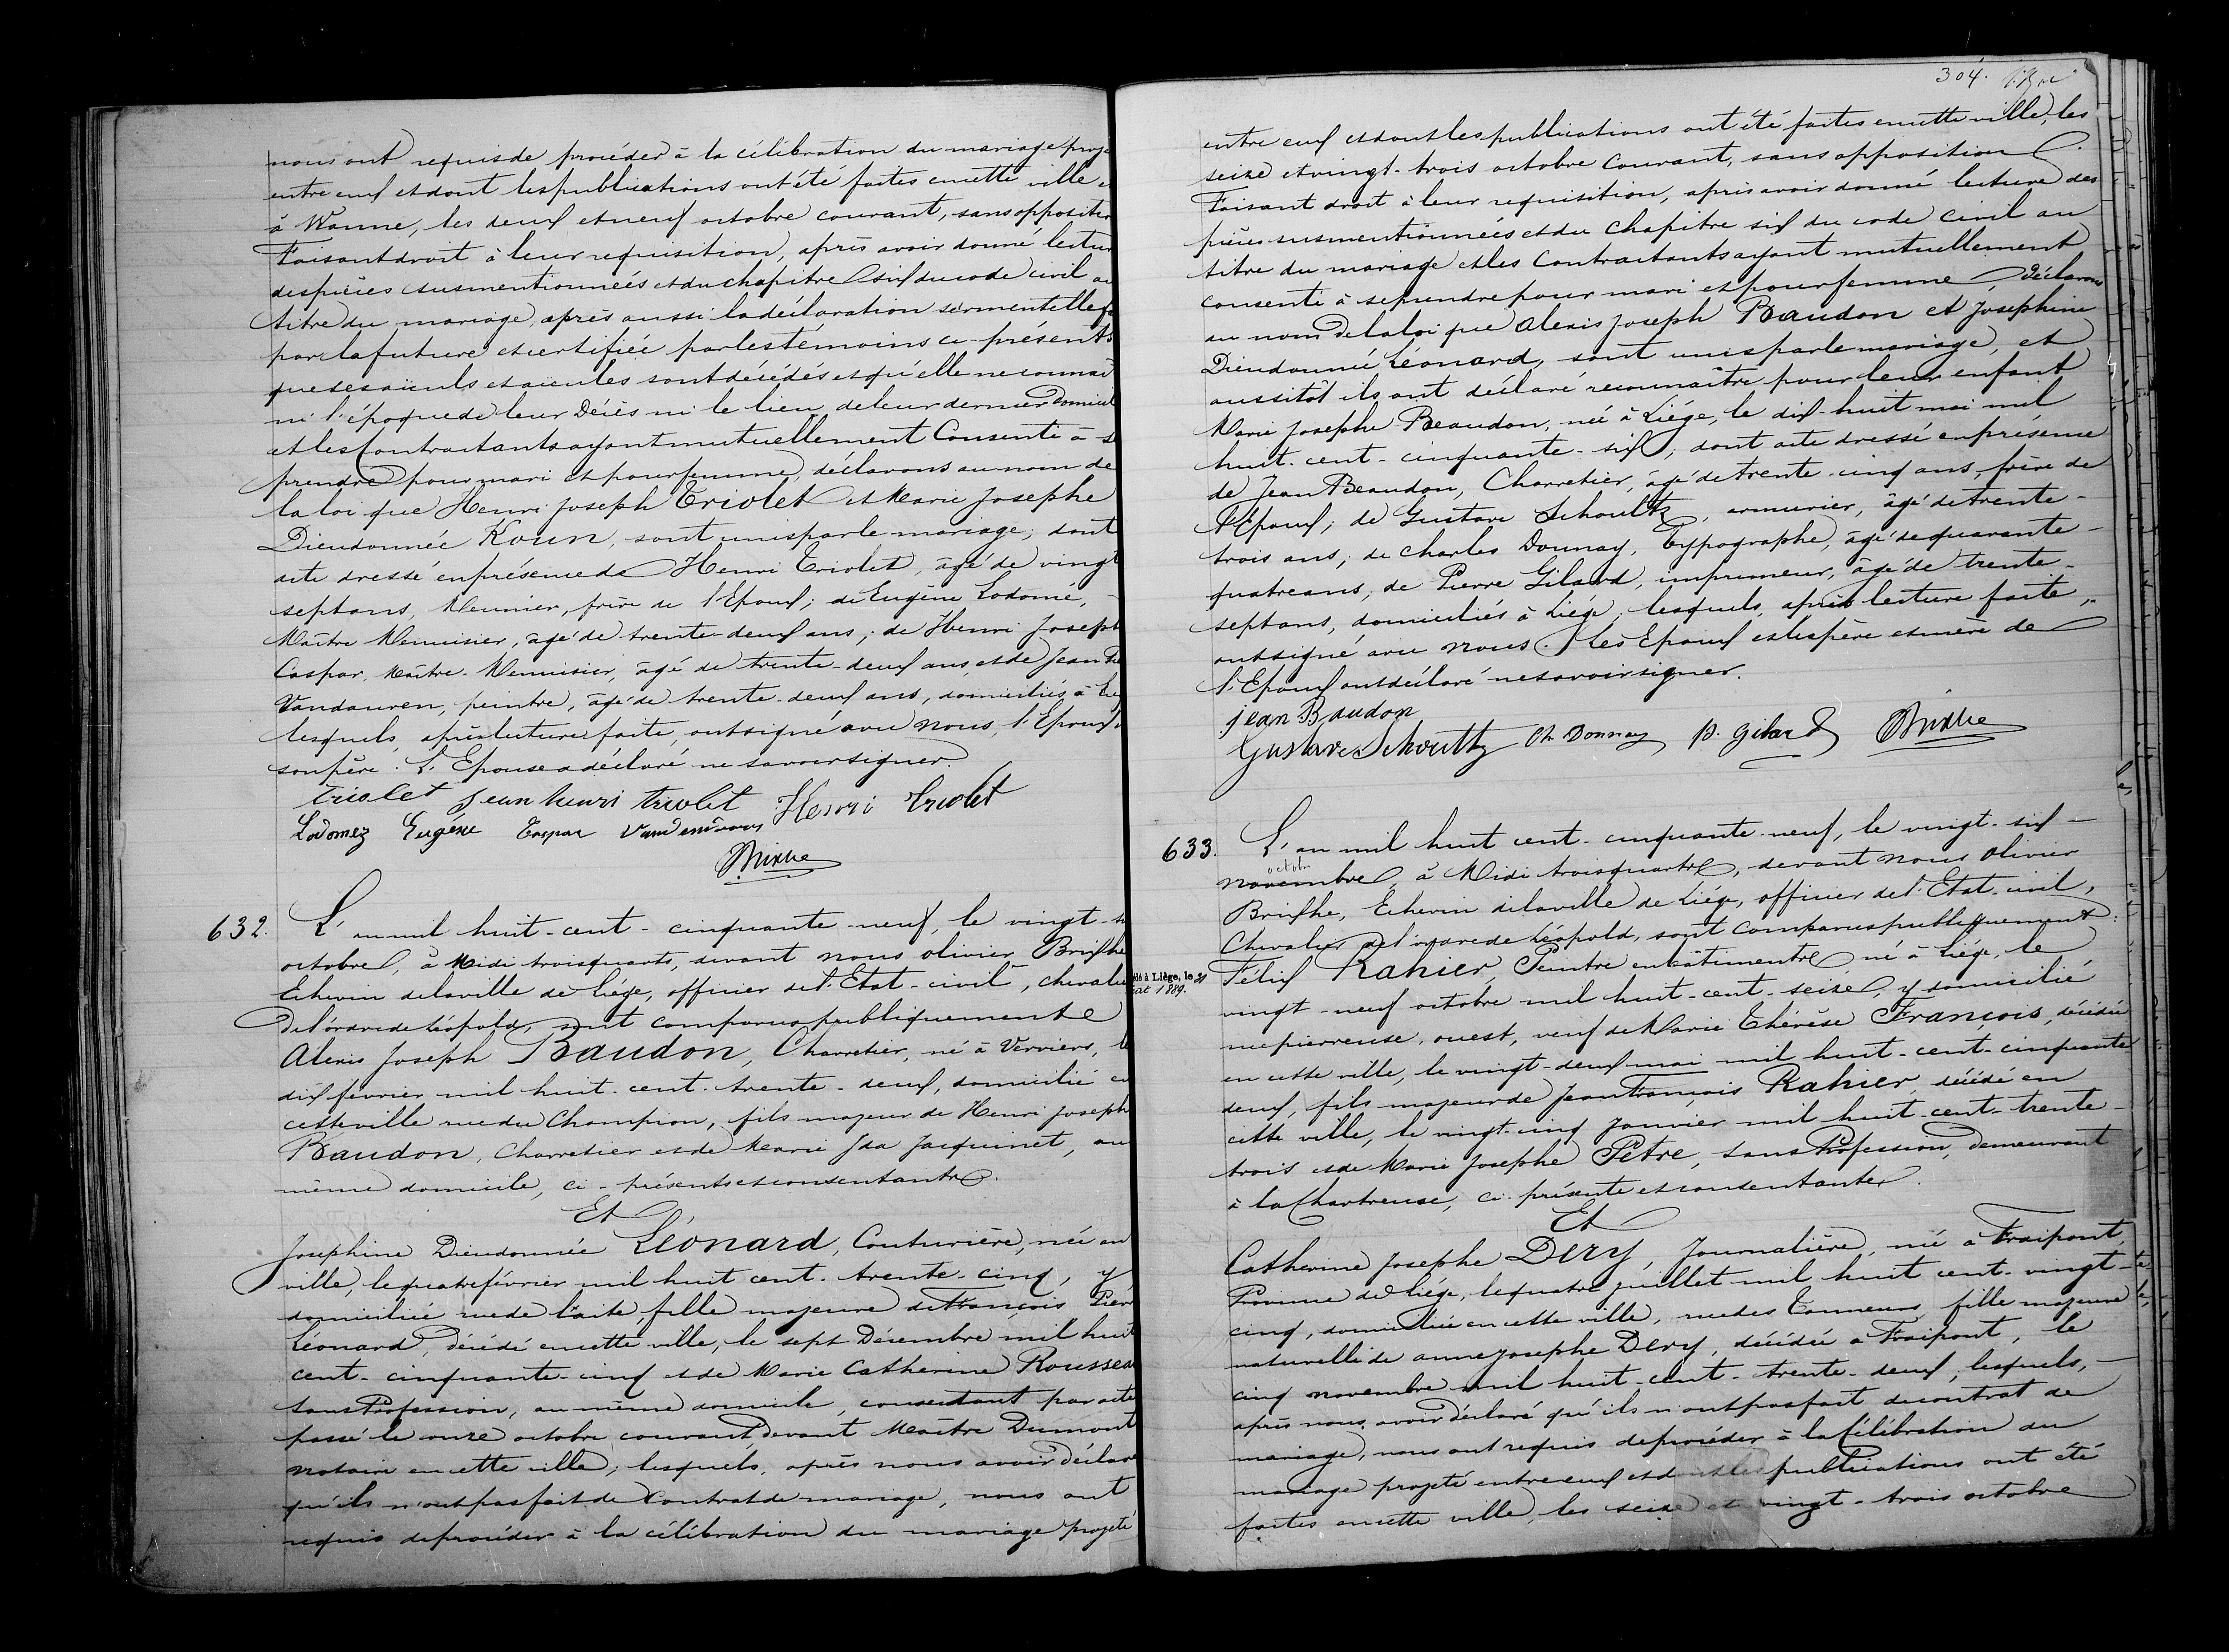 nous ont requis de procéder à la célébration du mariage proje
entre eux et dont les publications ont été faites en cette ville e
à Wanne, les deux et neuf octobre courant, sans oppositio
Faisant droit à leur requisition, après avoir donné lectur
des pièces susmentionnées et du chapitre six du code civil au
titre du mariage, après aussi la déclaration sermentelle
par la future et certifiée par les témoins ci-présents
que ses aïeuls et aïeules sont décédés et qu'elle ne connaî
ni l'époque de leur Décès ni le lieu de leur dernier Domicil
et les Contractants ayant mutuellement Consenti à se
prendre pour mari et pour femme, déclarons au nom de
la loi que Henri Joseph Triolet et Marie Josephe
Dieudonnée Koun, sont unis par le mariage; dont
acte dressé en présence de Henri Triolet, âgé de vingt
sept ans, Meunier, frère de l'Epoux; de Eugène Lodomé,
Maître Menuisier, âgé de trente-deux ans; de Henri Joseph
Caspar, Maître-Menuisier, âgé de trente-deux ans, et de Jean
Vandauren, peintre, âgé de trente-deux ans, domiciliés à
lesquels, après lecture faite, ont signé avec nous, l'Epoux
son père. L'Epouse a déclaré ne savoir signer.
triolet Jean henri triolet Henri Triolet
Lodomez Eugène Caspar
632. L'an mil huit-cent-cinquante-neuf, le vingt-
octobre, à Midi trois quarts, devant nous olivier Brixhe
Echevin de la ville de Liége, officier de l'Etat-civil, chevalie
De l'ordre de Léopold, sont comparus publiquement
Alexis Joseph Baudon, Charretier, né à Verviers, le
dix février mil huit-cent-trente-deux, domicilié en
cette ville rue du Champion, fils majeur de Henri Joseph
Baudon, Charretier et de Marie Ida Jacquinet, au
même domicile, ci-présents et consentants.
Et
Josephine Dieudonnée Léonard, Couturière, née en
ville, le quatre février mil huit cent-trente-cinq, y
domiciliée rue de l'aite, fille majeure de François Pierr
Léonard, décédé en cette ville, le sept Décembre mil huit
cent-cinquante-cinq et de Marie Catherine Rousseau
sans Profession, au même domicile, consentant par acte
passé le onze octobre courant, Devant Maître Dumont
notaire en cette ville; lesquels, après nous avoir Déclaré
qu'ils n'ont pas fait de Contrat de mariage, nous ont
requis de procéder à la célébration du mariage projeté
304.
entre eux et dont les publications ont été faites en cette ville, les
seize et vingt-trois octobre Courant, sans opposition.
Faisant droit à leur requisition, après avoir donné lecture des
pièces susmentionnées et du Chapitre six du code civil au
titre du mariage et les Contractants ayant mutuellement
consenti à se prendre pour mari et pour femme, Déclarons
au nom de la loi que Alexis Joseph Baudon et Joséphine
Dieudonnée Léonard, sont unis par le mariage, et
aussitôt ils ont déclaré reconnaître pour leur enfant
Marie Josephe Beaudon, née à Liége, le dix-huit mai mil
huit-cent-cinquante-six; dont acte dressé en présence
de Jean Beaudon, Charretier, âgé de trente-cinq ans, frère de
l'Epoux; de Gustave Schoultz, armurier, âgé de trente-
trois ans; de Charles Donnay, Typographe, âgé de quarante-
quatre ans, de Pierre Gilard, imprimeur, âgé de trente-
sept ans, domiciliés à Liége; lesquels, après lecture faite,
ont signé avec nous. Les Epoux et les père et mère de
l'Epoux ont déclaré ne savoir signer.
jean Baudon
Gustave Schoultz Ch Donnay P. Gilard Brixhe
633. L'an mil huit cent-cinquante-neuf, le vingt-six
octobre
novembre, à Midi trois quarts, devant nous olivier
Brixhe, Echevin de la ville de Liége, officier de l'Etat-civil,
Chevalier de l'ordre de Léopold, sont comparus publiquement:
à Liège, le 21
1889.
Félix Rahier, Peintre en bâtiments né à Liége, le
vingt-neuf octobre mil huit-cent-seize, y domicilié
rue pierreuse, ouest, veuf de Marie Thérèse François, décédée
en cette ville, le vingt-deux mai mil huit-cent-cinquante
deux, fils majeur de Jean François Rahier, décédé en
cette ville, le vingt-cinq Janvier mil huit-cent-trente-
trois et de Marie Josephe Pêtre, sans Profession, demeurant
à la Chartreuse, ci-présente et consentante.
Et
Catherine Josephe Dery, Journalière, née à Fraipont,
Province de Liége, le quatre juillet mil huit cent-vingt-
cinq, domiciliée en cette ville, rue des Tanneurs, fille majeure
naturelle de anne Josephe Dery, décédée à Fraipont, le
cinq novembre mil huit-cent-trente-deux, lesquels,
après nous avoir Déclaré qu'ils n'ont pas fait de contrat de
mariage, nous ont requis de procéder à la Célébration du
mariage projeté entre eux et dont les publications ont été
faites en cette ville, les seize et vingt-trois octobre